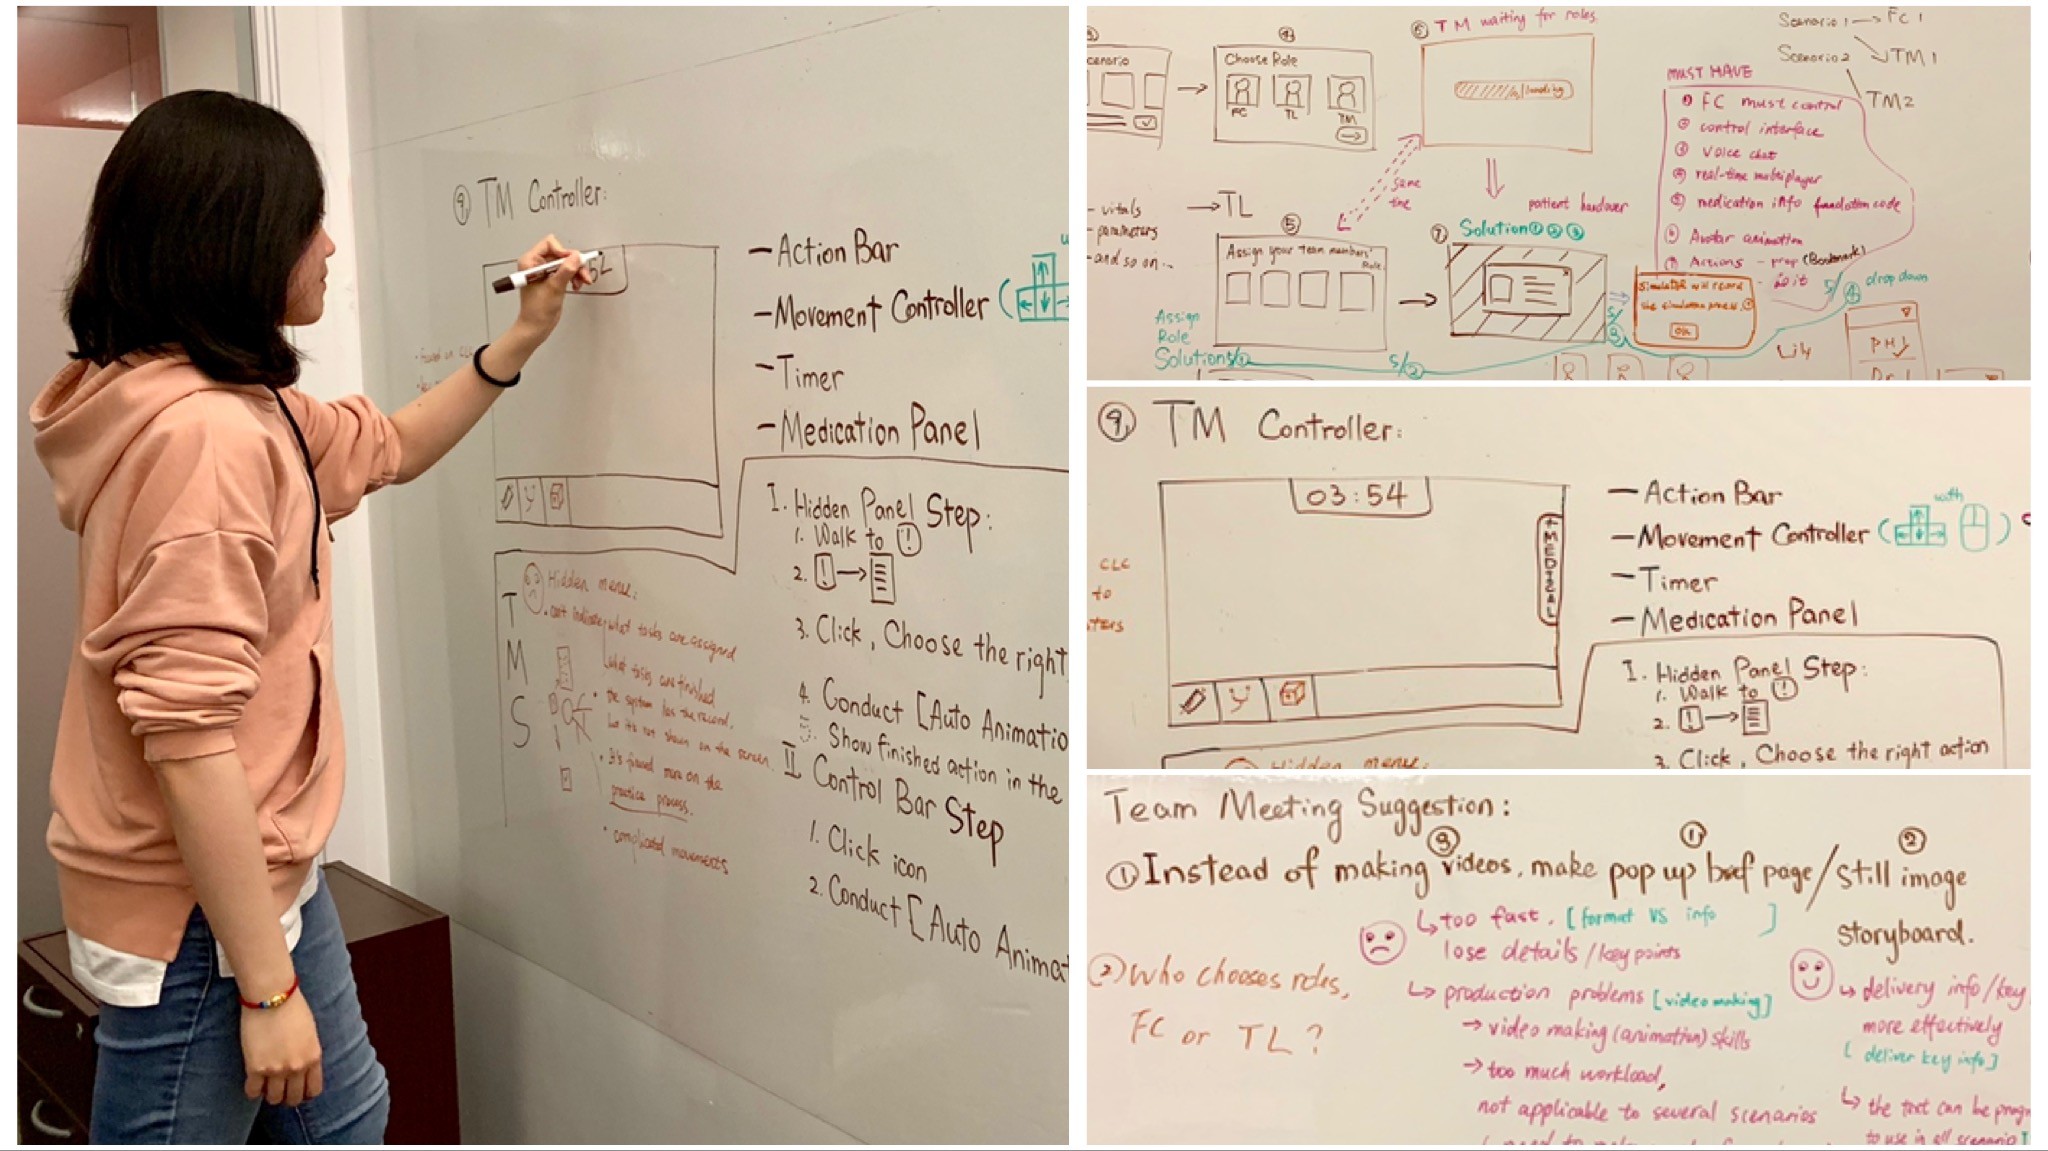 9. TM Controller:
52
- Action Bar
- Movement Controller (
- Timer
- Medication Panel
I. Hidden Panel Step:
1. Walk to !
2. ! →
3. Click, Choose the right
4. Conduct [Auto Animatio
5. Show finished action in the
II Control Bar Step
1. Click icon
2. Conduct [Auto Animat
TMS
Hidden menu:
• can't indicate what tasks are assigned
what tasks are finished
• the system has the record,
but it's not shown on the screen.
• It's focused more on the
practice process.
• complicated movements
cenario
④
Choose Role
FC TL TM
⑥ TM waiting for roles.
loading
Scenario 1 → FC 1
Scenario 2 TM 1
TM2
MUST HAVE
① FC must control
② control interface
③ voice chat
④ real-time multiplayer
⑤ medication info
code
⑥ Avatar animation
⑦ Actions - prop (Bookmark)
- vitals
- parameters
- and so on...
→ TL
same
time
⑤
Assign your team members'
Role
⑦ Solution ① ② ③
patient handover
the simulation process.
OK
④ drop down
Assign
Role
Solutions/①
S/②
S/
③
S/
Lily
PH1
Dr.1
9. TM Controller:
03:54
+MEDICAL
- Action Bar
- Movement Controller ( with )
- Timer
- Medication Panel
CLC
to
I. Hidden Panel Step:
1. Walk to !
2. ! →
3. Click, Choose the right action
Hidden menu:
Team Meeting Suggestion:
③ ① ②
① Instead of making videos, make pop up brief page/still image
storyboard.
↳ too fast. [format VS info ]
lose details/key points
↳ production problems [video making]
→ video making (animation) skills
→ too much workload,
not applicable to several scenarios
② Who chooses roles,
FC or TL?
↳ delivery info/key
more effectively
[ deliver key info ]
↳ the text can be prog
to use in all scenario